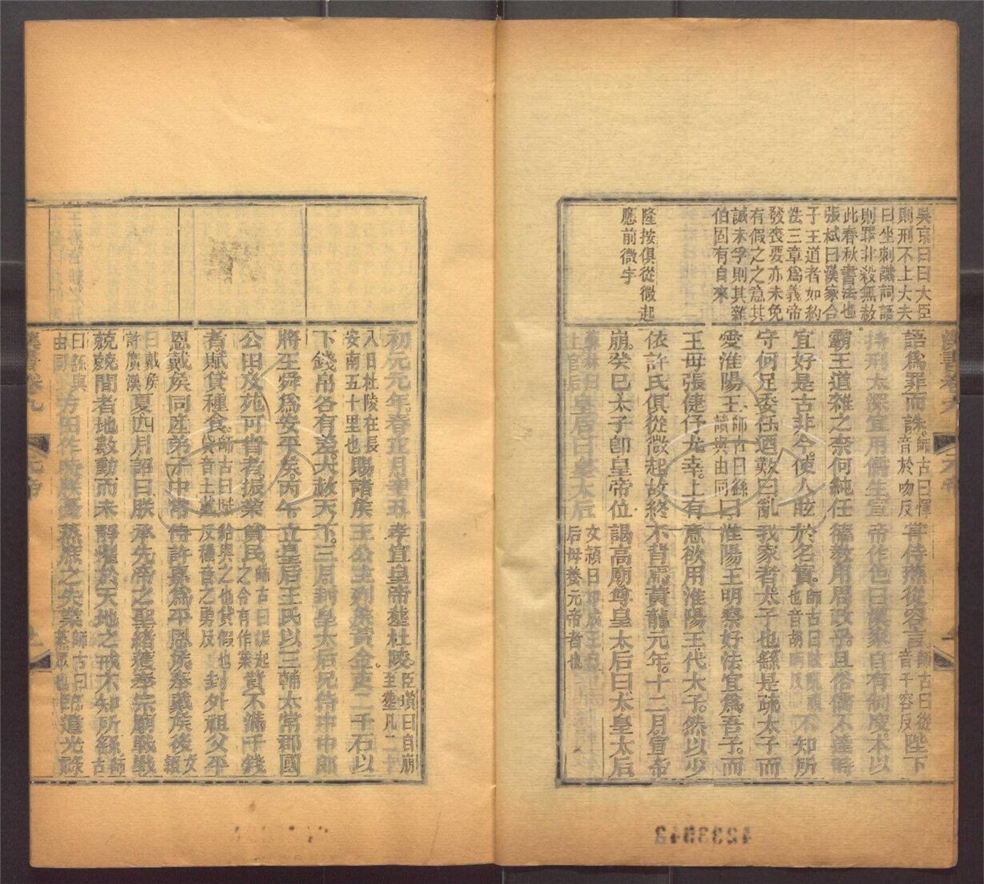 吳京曰曰大臣
則刑不上大夫
曰坐刺譏詞語
則罪非殺無赦
此春秋書法也
張栻曰漢家合
于王道者如約
法三章爲義帝
發喪要亦未免
有假之之意其
誠未孚則其雜
伯固有自來
隆按俱從微起
應前微字
語爲罪而誅師古曰惲音於吻反甞侍燕從容言師古曰從音千容反陛下
持刑太深宜用儒生宣帝作色曰漢家自有制度本以
霸王道雜之奈何純任德教用周政乎且俗儒不達時
宜好是古非今使人眩於名實師古曰眩亂視也音胡眄反不知所
守何足委任迺歎曰亂我家者太子也繇是疏太子而
愛淮陽王師古曰繇讀與由同曰淮陽王明察好法宜爲吾子而
王母張倢伃尤幸上有意欲用淮陽王代太子然以少
依許氏俱從微起故終不背焉黃龍元年十二月宣帝
崩癸巳太子即皇帝位謁高廟尊皇太后曰太皇太后
上官后皇后曰皇太后文穎曰邛成王皇后母養元帝者也
初元元年春正月辛丑孝宣皇帝葬杜陵臣瓚曰自崩至葬凡二十
八日杜陵在長安南五十里也賜諸侯王公主列侯黃金吏二千石以
下錢帛各有差大赦天下三月封皇太后兄侍中中郎
將王舜爲安平侯丙午立皇后王氏以三輔太常郡國
公田及苑可省者振業貧民師古曰振起之令有作業貲不滿千錢
者賦貸種食師古曰賦給與之也貸假也貸音土戴反種音之勇反封外祖父平
恩戴侯同產弟子中常侍許嘉爲平恩侯奉戴侯後文穎
曰戴侯許廣漢夏四月詔曰朕承先帝之聖緒獲奉宗廟戰戰
兢兢間者地數動而未靜懼於天地之戒不知所繇師古
曰繇與由同方田作時朕憂蒸庶之失業師古曰蒸衆也臨遣光祿